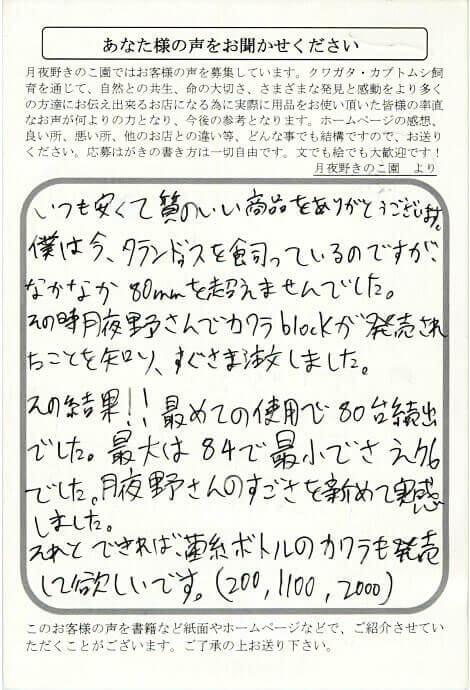 あなた様の声をお聞かせください
月夜野きのこ園ではお客様の声を募集しています。クワガタ・カブトムシ飼
育を通じて、自然との共生、命の大切さ、さまざまな発見と感動をより多く
の方達にお伝え出来るお店になる為に実際に用品をお使い頂いた皆様の率直
なお声が何よりの力となり、今後の参考となります。ホームページの感想、
良い所、悪い所、他のお店との違い等、どんな事でも結構ですので、お送り
ください。応募はがきの書き方は一切自由です。文でも絵でも大歓迎です！
月夜野きのこ園　より
いつも安くて質のいい商品をありがとうございます。
僕は今、タランドゥスを飼っているのですが、
なかなか80mmを超えませんでした。
その時月夜野さんでカワラblockが発売され
たことを知り、すぐさま注文しました。
その結果!! 最めての使用で80台続出
でした。最大は84で最小でさえ76
でした。月夜野さんのすごさを新めて実感
しました。
それと できれば、菌糸ボトルのカワラも発売
して欲しいです。(200, 1100, 2000)
このお客様の声を書籍など紙面やホームページなどで、ご紹介させてい
ただくことがございます。ご了承の上お送り下さい。